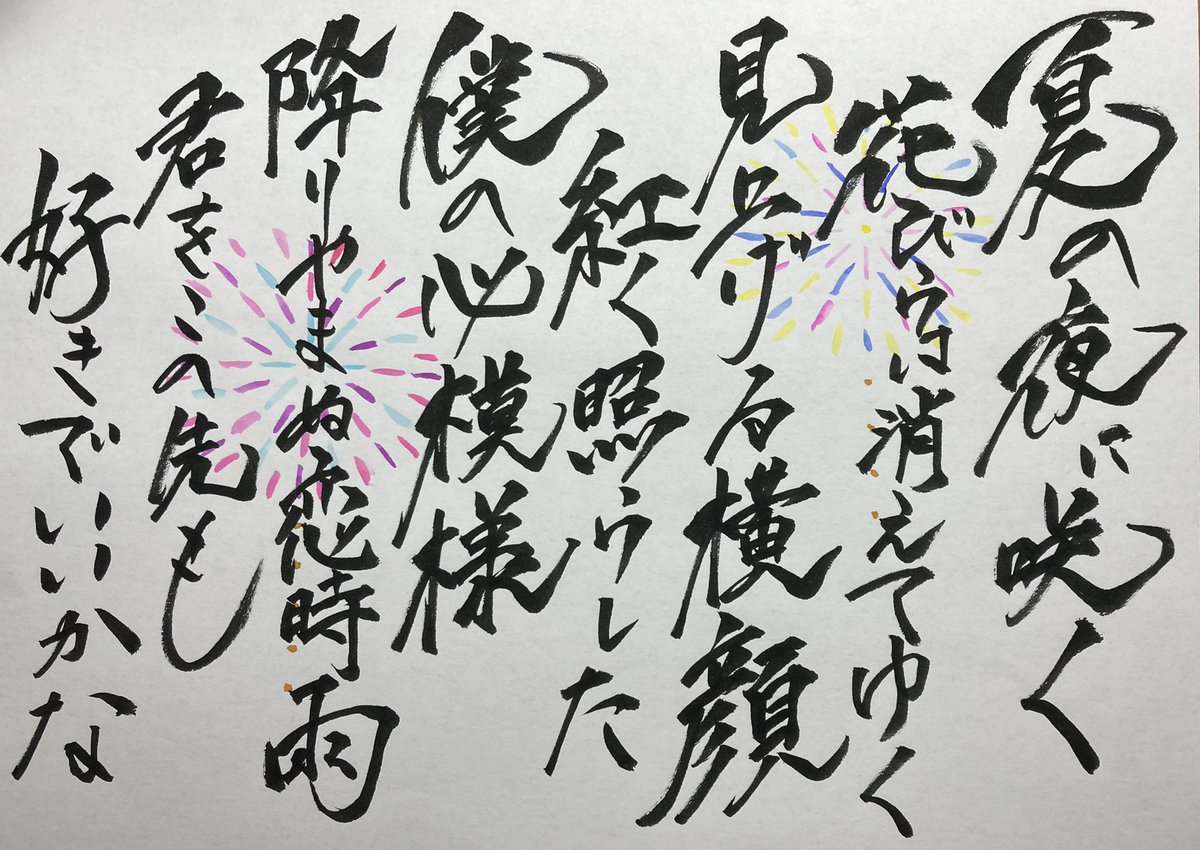 夏の夜に咲く
花びらは消えてゆく
見上げる横顔
紅く照らした
僕の心模様
降りやまぬ恋時雨
君をこの先も
好きでいいかな